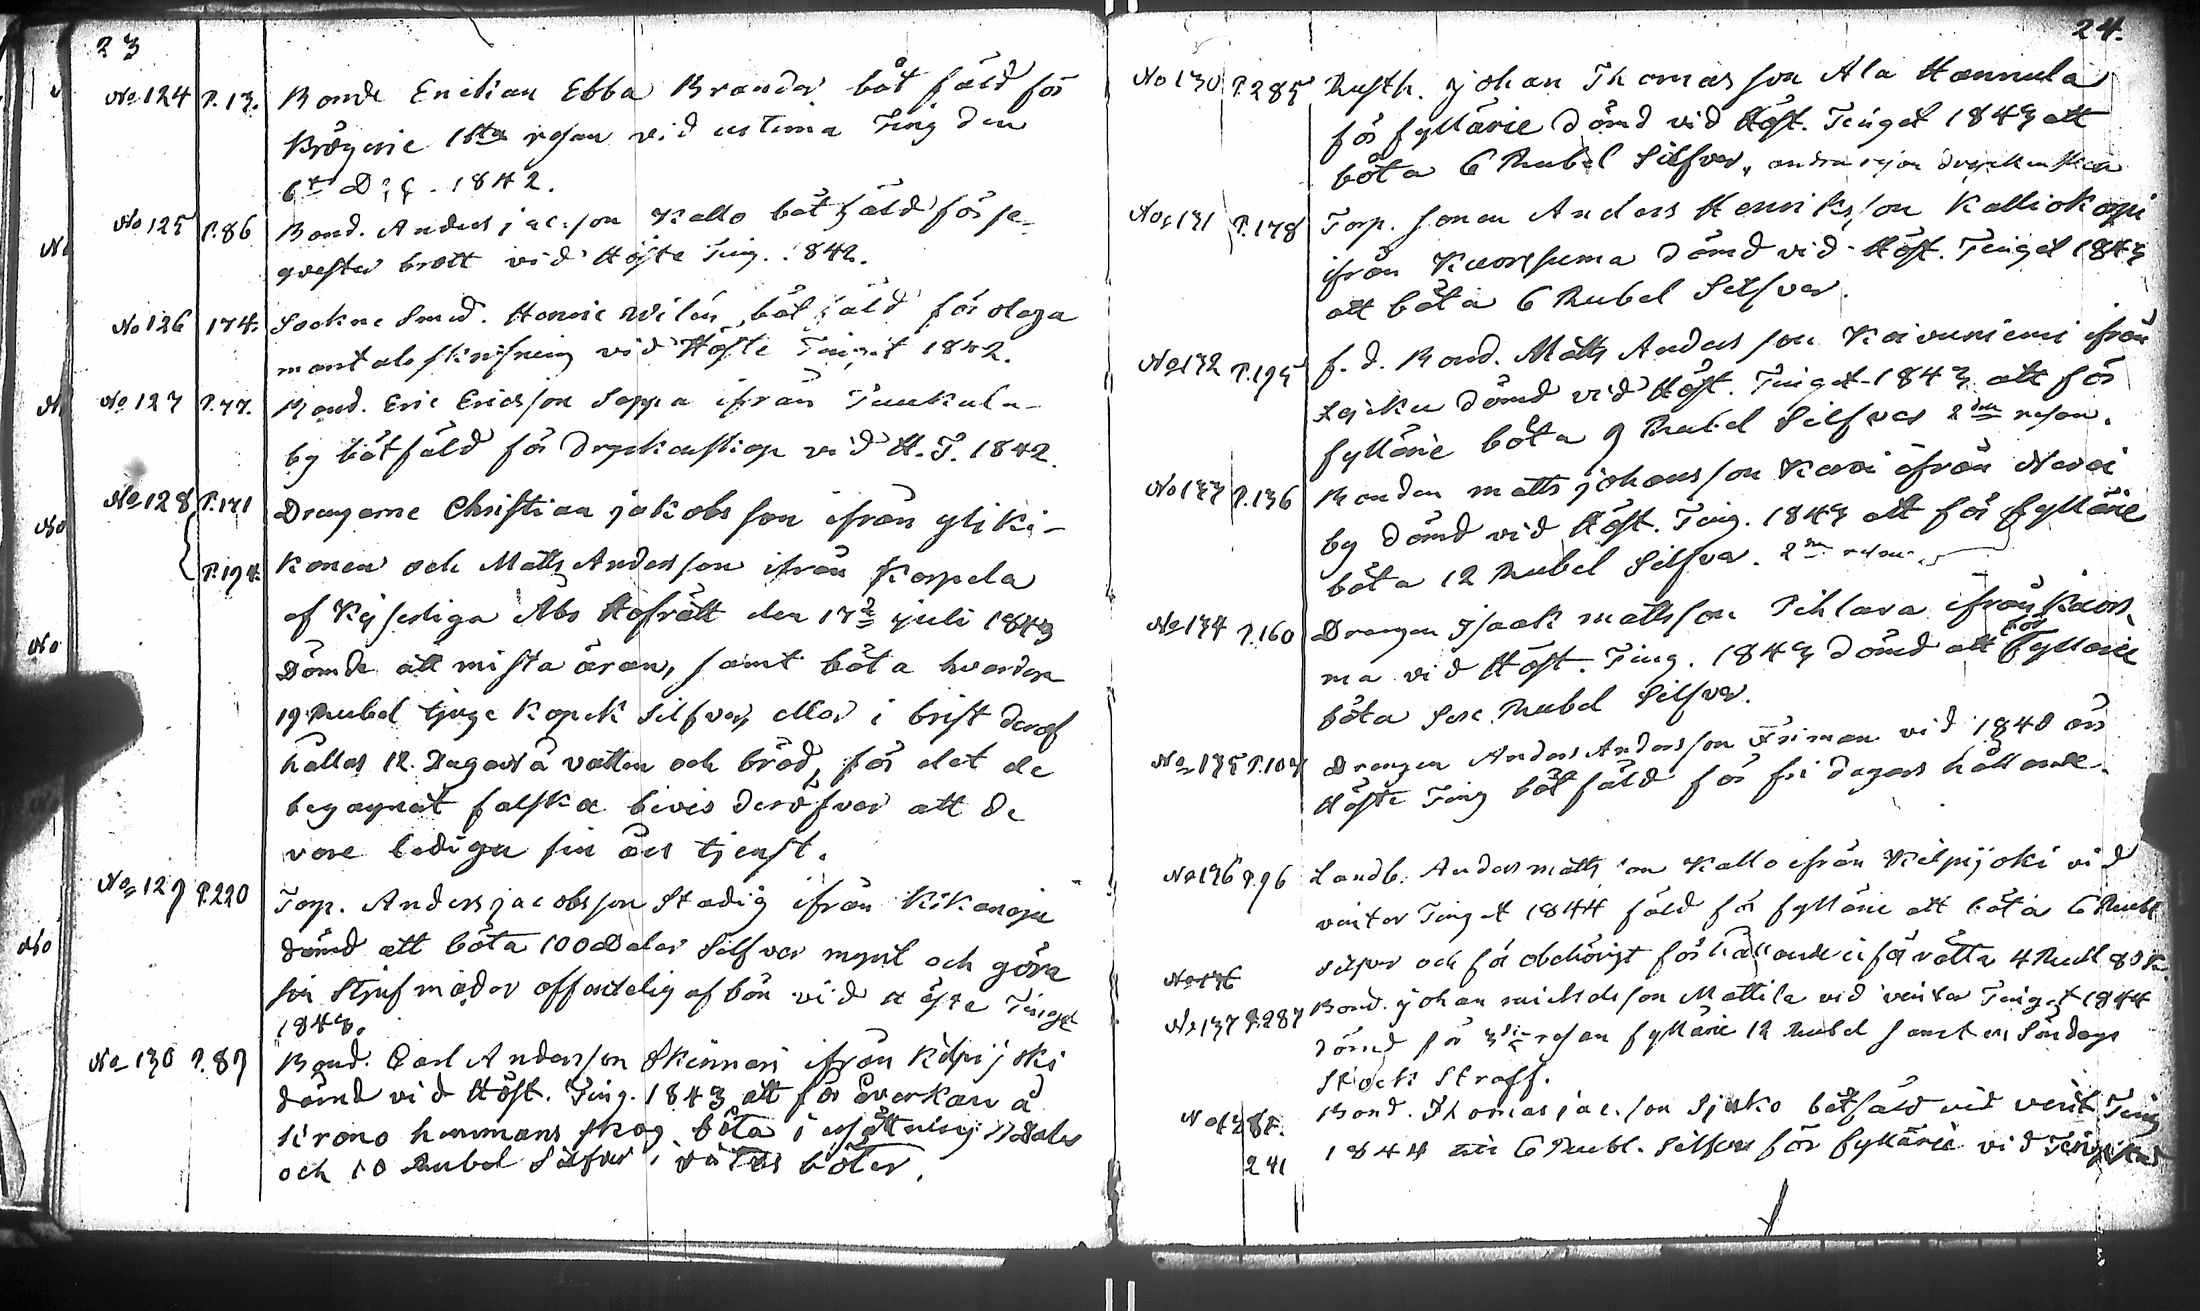 23
No 124 P. 13. Bonde Enckian Ebba Brander böt fäld för
Krögerie 1sta resan vid Ting den
6t Dec. 1842.
No 125 P. 86 Bond. Anders Jac:son Kallo böt fäld för se-
qvester brott vid Höste Ting. 1842.
No 126 174. Sockne Smed. Henric Wilén böt fäld för olaga
mantals skrifning vid Höste Tinget 1842.
No 127 P. 77. Bond. Eric Ericsson Seppä ifrån Tuukula-
by bötfäld för Dryckenskap vid H. T. 1842.
No 128 P. 171 Drengarne Christian Jakobsson ifrån Yliki-
P. 194. konen och Matts Andersson ifrån Korpela
af Kejserliga Åbo Hofrätt den 17 Juli 1843
Dömde att mista äran, samt böta hvardera
19 Rubel tjuge Kopek Silfver, eller i brist deraf
hållas 12. Dagar å vatten och bröd, för det de
begagnat falska bevis deröfver att de
vore lediga sin års tjenst.
No 129 P. 220 Torp. Anders Jacobsson Stadig ifrån Kikanoja
dömd att böta 100 Daler Silfver mynt och göra
sin Stjufmoder offentelig afbön vid Höste Tinget
1843.
No 130 P. 89 Bond. Carl Andersson Skinnari ifrån Kilpijoki
dömd vid Höst. Ting. 1843 att för åverkan å
Krono hemmans skog böta i Daler
och 10 Rubel Silfver i böter.
24.
No 130 P. 285 Rusth. Johan Thomasson Ala Hannula
för fylläri dömd vid Höst. Tinget 1843 att
böta 6 Rubel Silfver, andra resan dryckenskap
No 131 P. 178 Torp. sonen Anders Henriksson Kalliokorpi
ifrån Kuorsuma dömd vid Höst. Tinget 1843
att böta 6 Rubel Silfver.
No 132 P. 195 f. d. Bond. Matts Andersson Koivuniemi ifrån
dömd vid Höst. Tinget 1843 att för
fylläri böta 9 Rubel Silfver 2dra resan.
No 133 P. 136 Bonden Matts Johansson ifrån
by dömd vid Höst. Ting. 1843 att för fylläri
böta 12 Rubel Silfver. 2ra resan.
No 134 P. 160 Drengen Isaak Mattsson Pihlava ifrån Kuorsu-
ma vid Höst. Ting. 1843 dömd att för fylleri
böta sex Rubel Silfver.
No 135 P. 104 Drengen Anders Andersson Friman vid 1840 års
Höste Ting böt fäld för fri dagars hållande.
No 136 P. 96 Landb. Anders Mattsson Kallo ifrån Kilpijoki vid
vinter Tinget 1844 fäld för fylläri att böta 6 Rubl
silfver och för obehörigt förhållande inför rätta 4 Rubl 80 K.
No 136
No 137 P. 287 Bond. Johan Michelsson Mattila vid vinter Tinget 1844
dömd för 3die resan fylläri 12 Rubel samt en Söndags
Stock Straff.
Bond. Thomas Jac:son Sjuko bötfäld vid vint. Ting
241 1844 6 Rubl. Silfver för fylläri vid